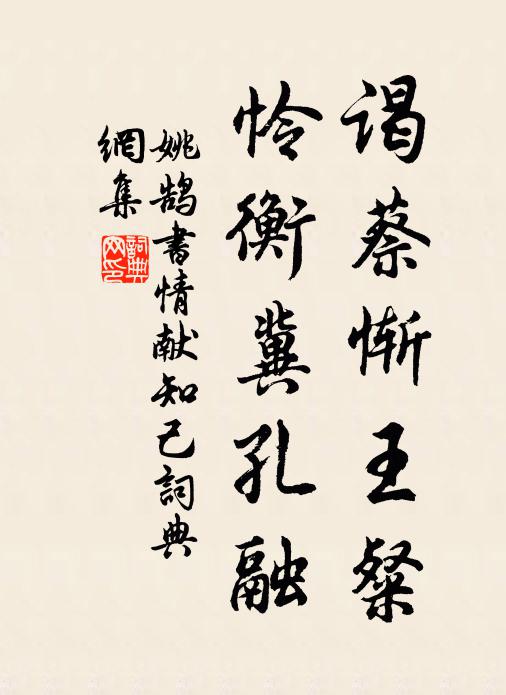 谒蔡惭王粲
怜衡冀孔融
姚鹄书情献知己詞典
網集
詞典网印